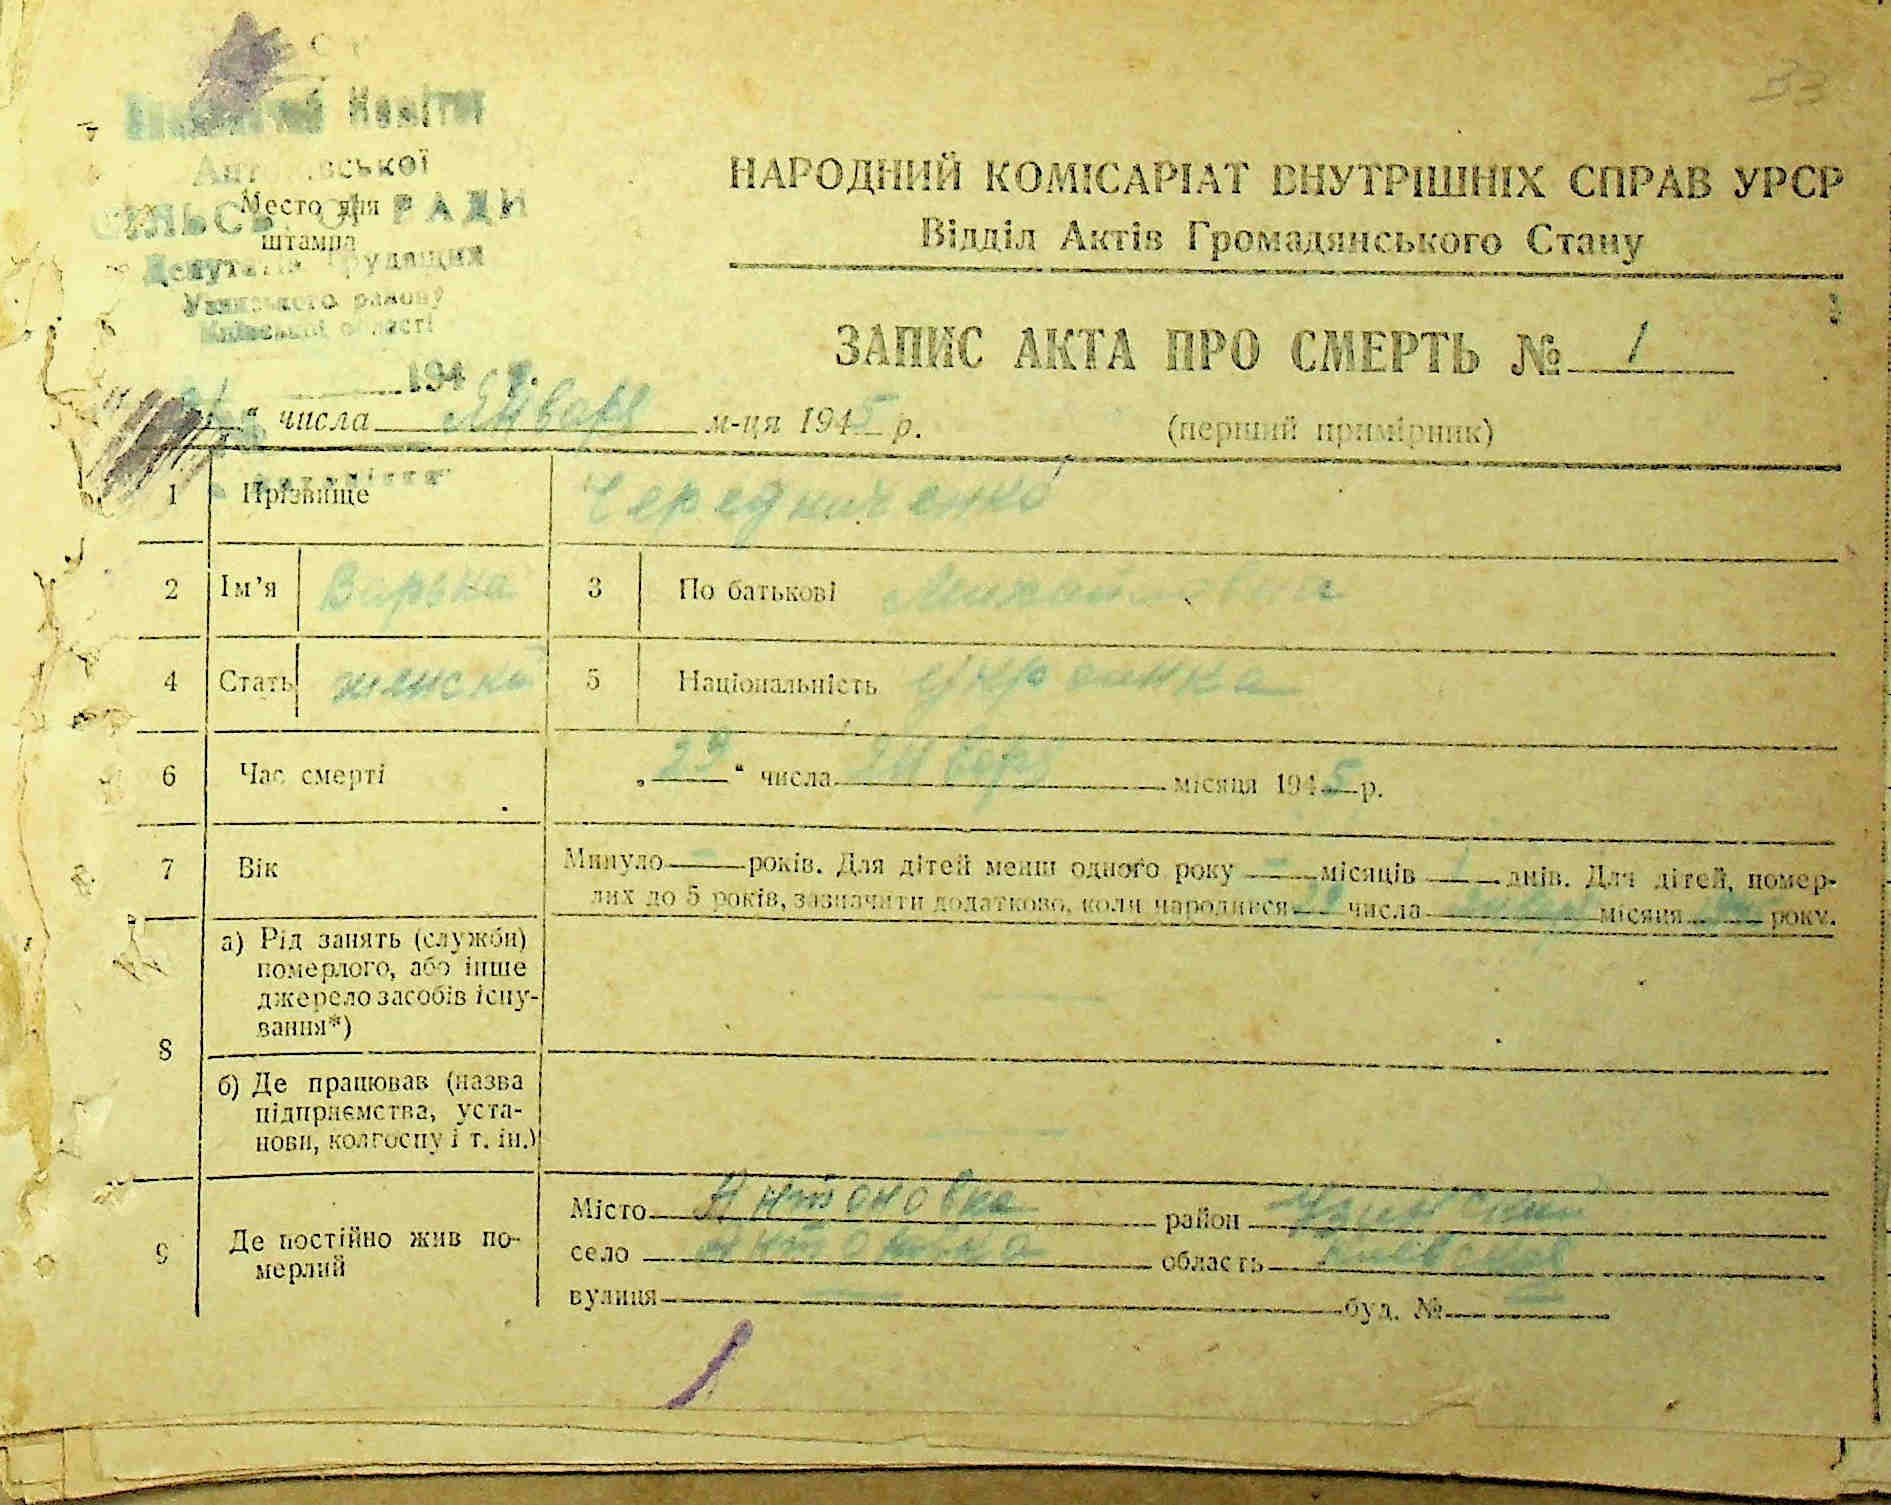 33
Комітет
Антонівської
СІЛЬСЬКОЇ РАДИ
Место для
штампа
Депутатів Трудящих
Узинського району
Київської області
НАРОДНИЙ КОМІСАРІАТ ВНУТРІШНІХ СПРАВ УРСР
Відділ Актів Громадянського Стану
ЗАПИС АКТА ПРО СМЕРТЬ № 1
194 р.
“ числа Января м-ця 1945 р.
(перший примірник)
1 Прізвище Чередниченко
2 Ім’я Варька 3 По батькові Михайловна
4 Стать женский 5 Національність украинка
6 Час смерті „29“ числа Января місяця 1945 р.
7 Вік Минуло — років. Для дітей менш одного року — місяців 1 днів. Для дітей, помер-
лих до 5 років, зазначити додатково, коли народився числа місяця року.
8 а) Рід занять (служби)
померлого, або інше
джерело засобів існу-
вання*) —
б) Де працював (назва
підприємства, уста-
нови, колгоспу і т. ін.) —
9 Де постійно жив по-
мерлий
Місто Антоновка район Узинский
село область Киевская
вулиця — буд. № —